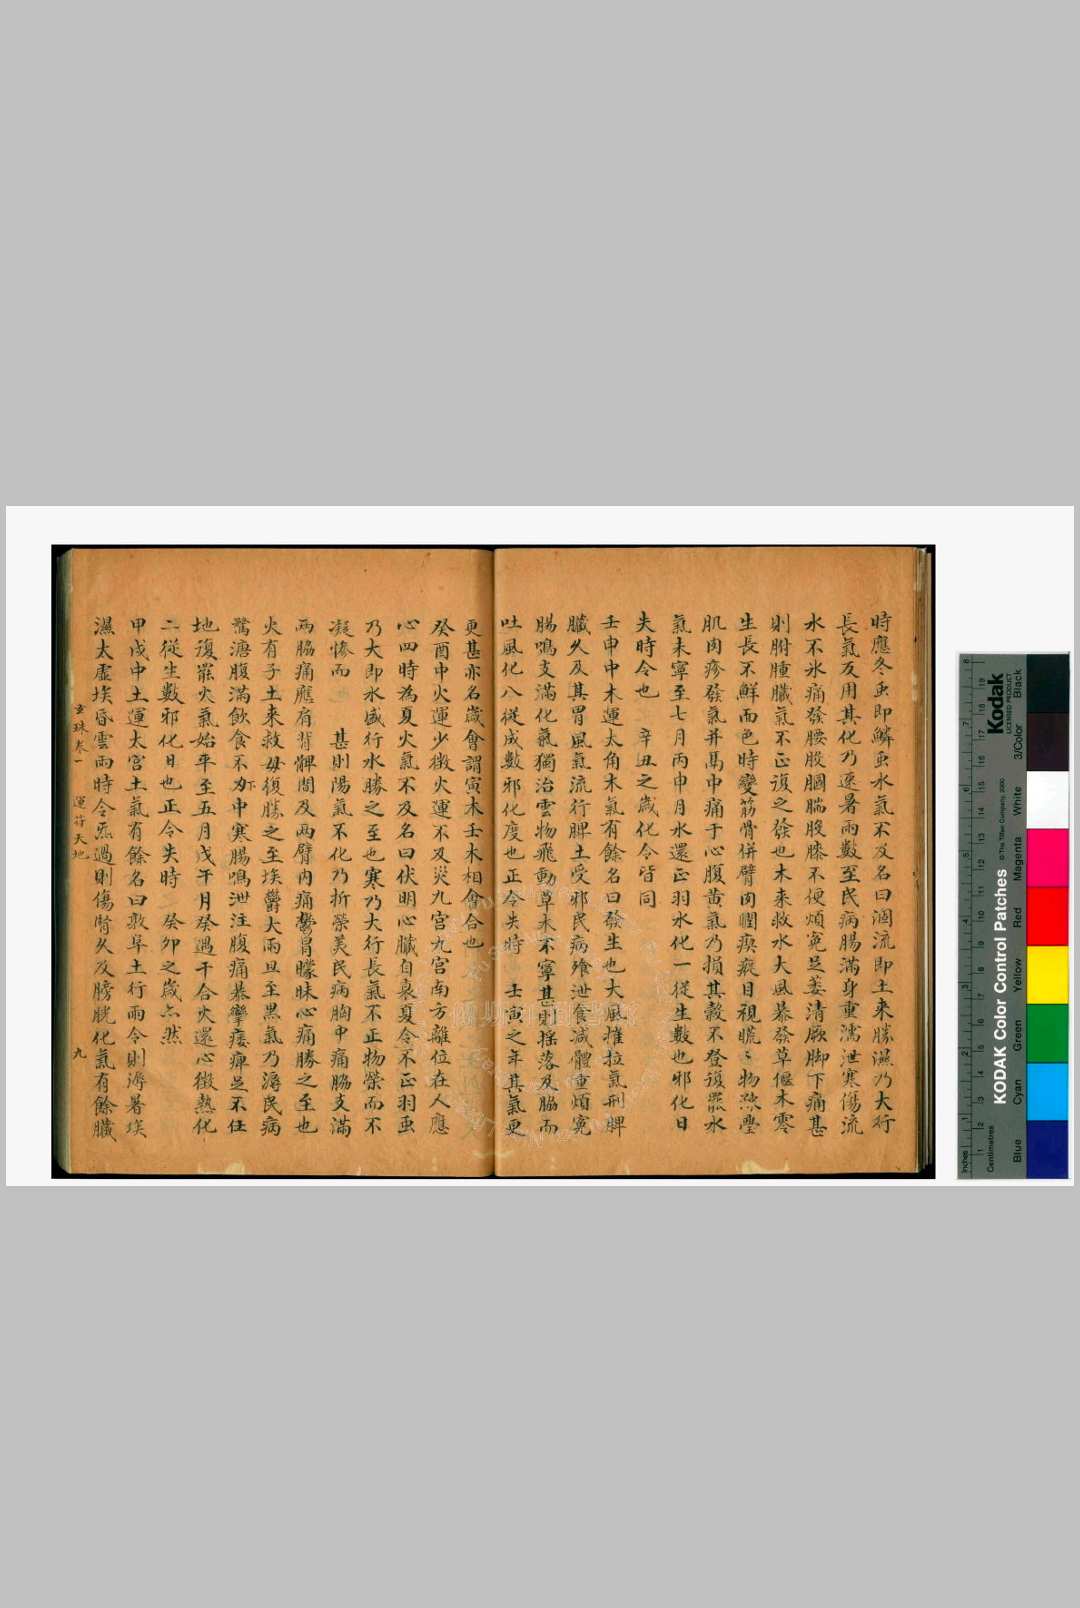 時應冬虫即鱗虫水氣不及名曰涸流即土来勝濕乃大行
長氣反用其化乃速暑雨數至民病腸滿身重濡泄寒傷流
水不氷痛發腰股膕腨股膝不便煩寃足萎清厥脚下痛甚
則胕腫臓氣不正復之發也木来救水大風暴發草偃木零
生長不鮮而色時變筋骨併臂肉瞤瘈瘲目視䀮物踈璺
肌肉疹發氣并鬲中痛于心腹黄氣乃損其穀不登復罷水
氣未寧至七月丙申月水還正羽水化一從生數也邪化日
失時令也 辛丑之歲化令皆同
壬申中木運太角木氣有餘名曰發生也大風摧拉氣刑脾
臓久及其胃風氣流行脾土受邪民病飱泄食減體重煩寃
腸鳴支滿化氣獨治雲物飛動草木不寧甚則揺落及脇而
吐風化八從成數邪化度也正令失時 壬寅之年其氣更
更甚亦名歲會謂寅木壬木相會合也
癸酉中火運少徴火運不及災九宮九宮南方離位在人應
心四時為夏火氣不及名曰伏明心臓自衰夏令不正羽虫
乃大即水盛行水勝之至也寒乃大行長氣不正物榮而不
凝惨而 甚則陽氣不化乃折榮美民病胸中痛脇支滿
兩脇痛應肩背髀間及兩臂内痛鬱冒矇昧心痛勝之至也
火有子土来救母復勝之至埃鬱大雨且至黒氣乃溽民病
鶩溏腹滿飲食不下中寒腸鳴泄注腹痛暴攣痿痺足不任
地復罷火氣始平至五月戊午月癸遇干合火還心徴熱化
二從生數邪化日也正令失時 癸卯之歲亦然
甲戌中土運太宮土氣有餘名曰敦阜土行雨令則溽暑埃
濕太虚埃昏雲雨時令炁過則傷腎久及膀胱化氣有餘臓
玄珠卷一 運符天地 九
Kodak
LICENSED PRODUCT
KODAK Color Control Patches
© The Tiffen Company, 2000
Inches
Centimetres
Blue Cyan Green Yellow Red Magenta White 3/Color Black